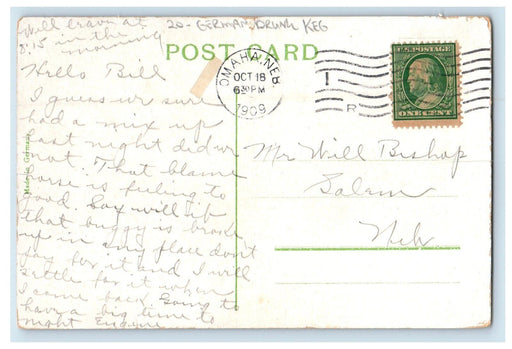 Will leave at
8;15 in the
morning
20- GERMAN, DRUNK KEG
POST CARD
OMAHA, NEB.
OCT 18
630 PM
1909
R
U.S. POSTAGE
ONE CENT
Hello Bill
I guess we sure
had a mix up
last night did we
not. That blame
horse is feeling to
good Say will if
that buggy is broke
up in any place don't
pay for it and I will
settle for it when
I come back. Going to
have a big time to
night
Made in Germany
Mr Will Bishop
Salem
Neb